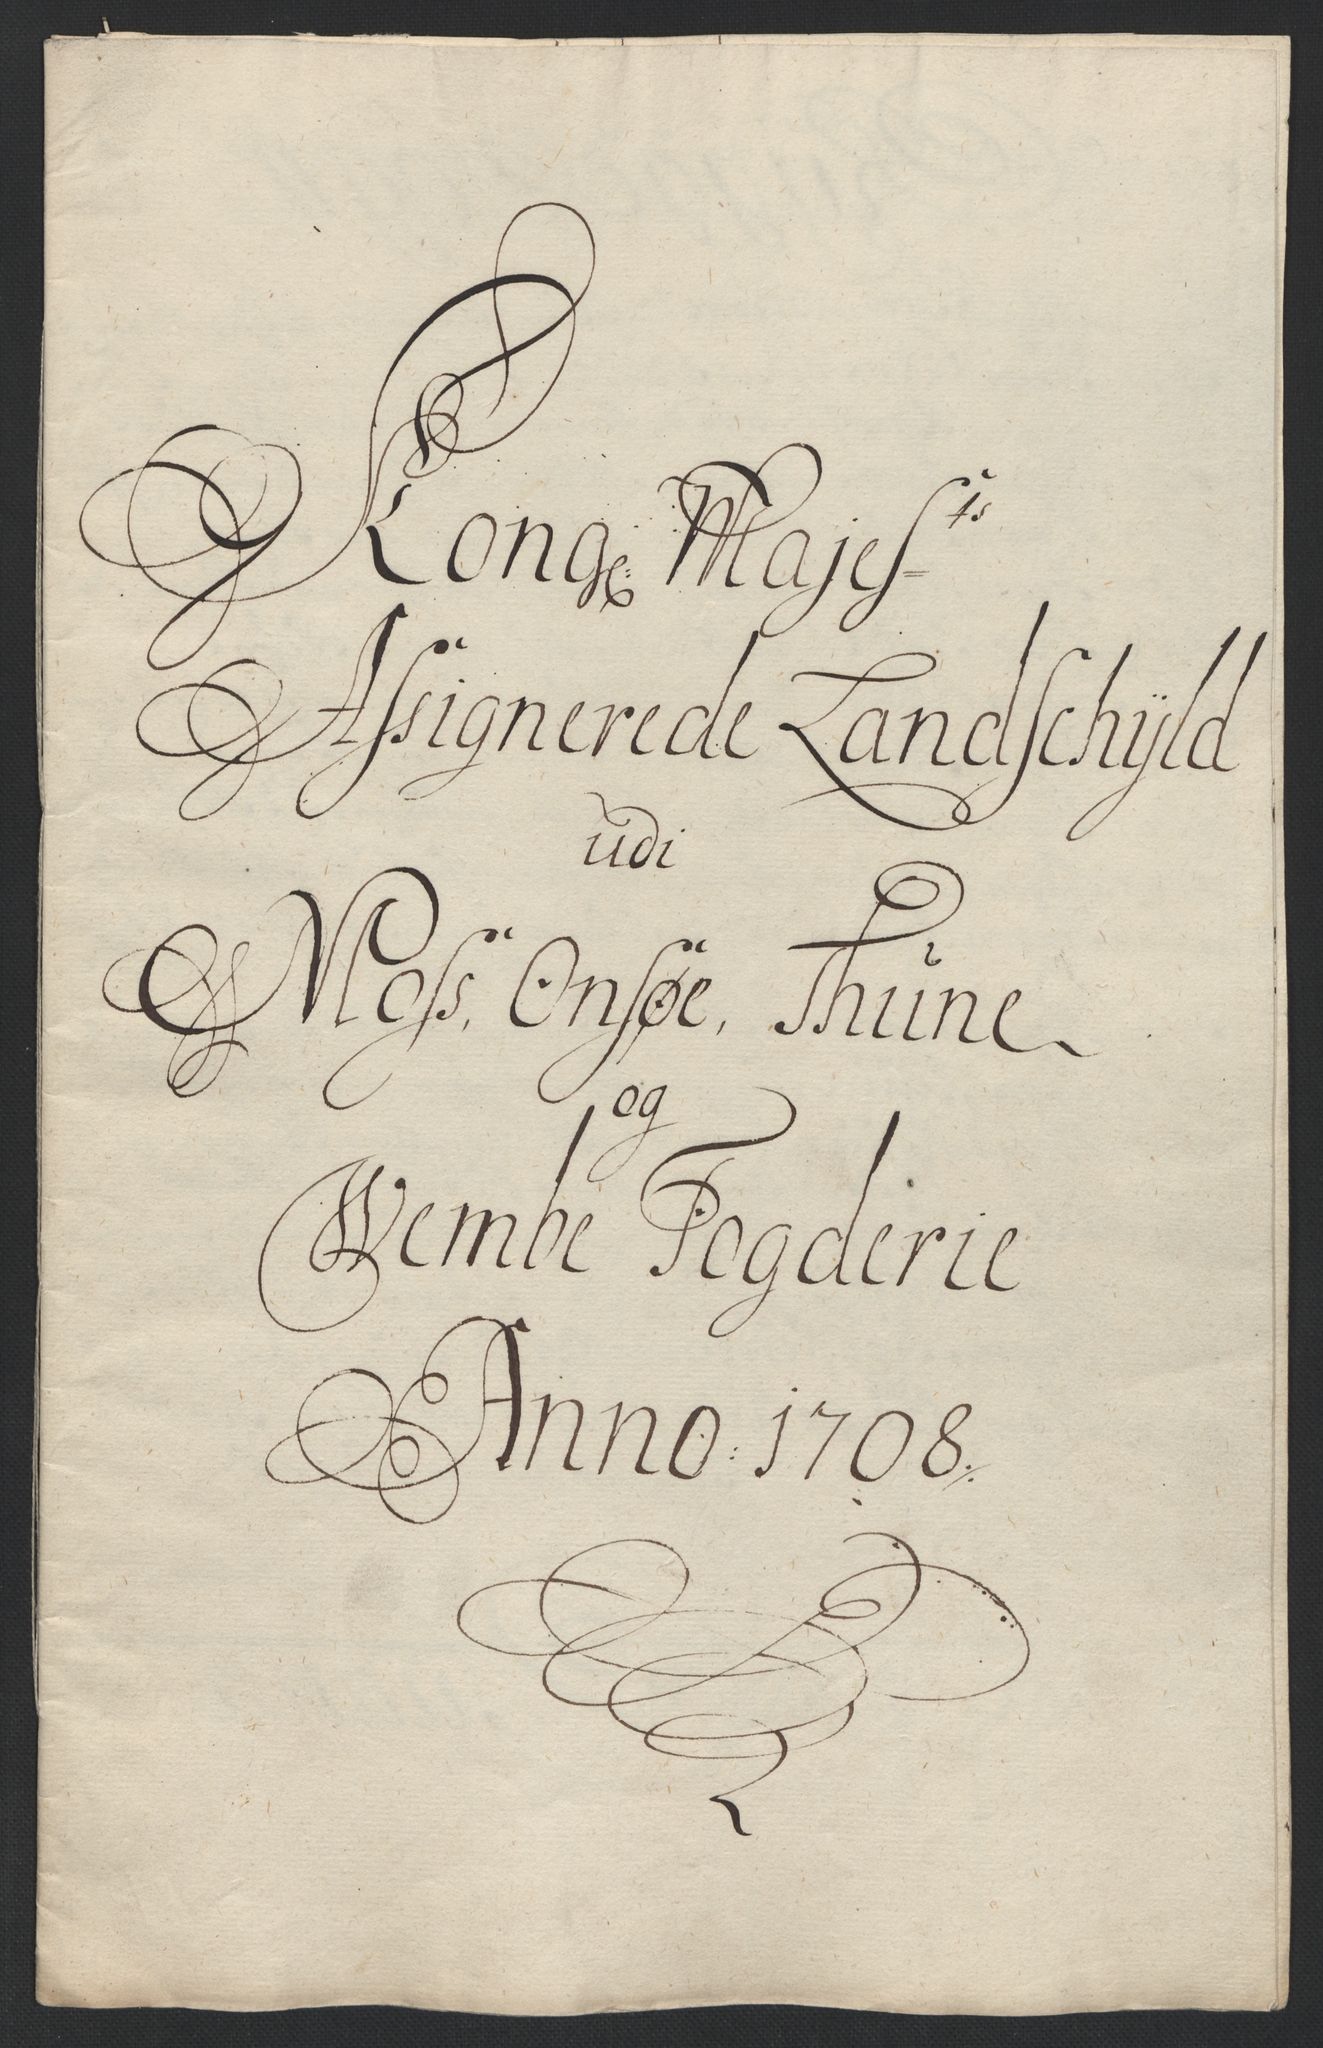 Kong: Majesᵗˢ
Assignerede Landschÿld
udi
Moss, Onsøe, Thune
og
Wembe Fogderie
Anno: 1708.